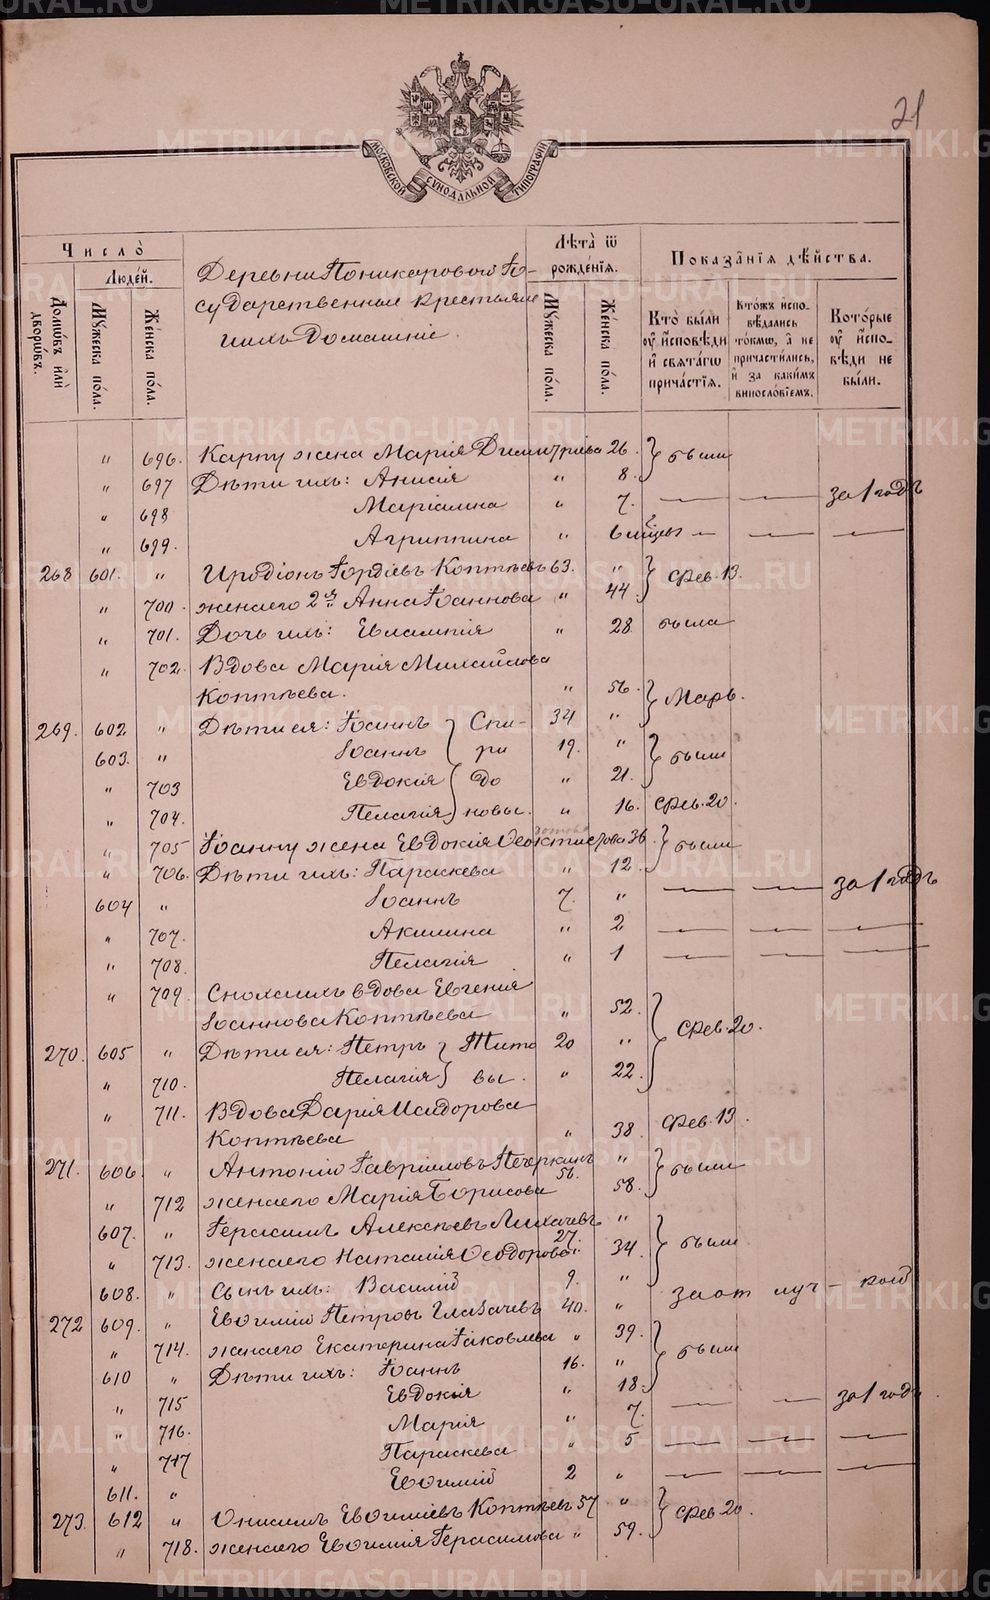 21
МОСКОВСКОЙ СѴНОДАЛЬНОЙ ТИПОГРАФІИ
Число̀
Люде́й.
Домѡ́въ и҆лѝ дворѡ́въ.
Мꙋ́жеска по́ла.
Же́нска по́ла.
Деревни Поникаровой Го-
сударственные крестьяне
и ихъ Домашніе.
Лѣ́та ѿ рожде́нїѧ.
Мꙋ́жеска по́ла.
Же́нска по́ла.
Показа́нїѧ дѣ́йства.
Кто̀ бы́ли ᲂу҆ и҆́сповѣди и҆ свѧта́гѡ прича́стїѧ.
Кто́жъ и҆спо-вѣ́дались то́кмѡ, а҆ не причасти́лись, и҆ за каки́мъ виносло́вїемъ.
Кото́рые ᲂу҆ и҆спо-вѣди не бы́ли.
" 696. Карпу жена Марія Димитріева 26. были
" 697 Дѣти ихъ: Анисія " 8.
" 698 Маріамна " 7. — — за 1 годъ
" 699. Агриппина " 6 — —
268 601. " Иродіонъ Гордіевъ Коптѣевъ 63. " Фев. 13.
" 700. жена его 2я Анна Іоаннова " 44
" 701. Дочь ихъ: Евлампія " 28 была
" 702. Вдова Марія Михайлова
Коптѣева. " 56. Марь.
269. 602 " Дѣти ея: Іоаннъ Спи- 34 "
603. " Іоаннъ ри 19. " были
" 703 Евдокія до " 21.
" 704. Пелагія новы. " 16. Фев. 20.
" 705 Іоанну жена Евдокія Ѳеоктистова 36. были
" 706. Дѣти ихъ: Параскева " 12.
604 " Іоаннъ 7. " — — за 1 годъ
" 707. Акилина " 2 — — —
" 708. Пелагія " 1 — — —
" 709. Сноха ихъ вдова Евгенія
Іоаннова Коптѣева " 52. Фев. 20.
270. 605 " Дѣти ея: Петръ Тито 20 "
" 710. Пелагія вы. " 22.
" 711. Вдова Дарія Исидорова
Коптѣева " 38 Фев. 13.
271. 606. " Антоній Гавріиловъ Печеркинъ 56. " были
" 712 жена его Марія Борисова 58.
607. " Герасимъ Алексѣевъ Лихачевъ 27. " были
" 713. жена его Наталія Ѳеодорова " 34.
608. " Сынъ ихъ: Василій 9. " за от луч - кой
272 609. " Евѳимій Петровъ Глызачевъ 40. " были
" 714. жена его Екатерина Іаковлева " 39.
610 " Дѣти ихъ: Іоаннъ 16. "
" 715 Евдокія " 18.
" 716. Марія " 7. — — за 1 годъ
" 717 Параскева " 5 — — —
611. " Евѳимій 2 " — — —
273. 612 " Онисимъ Евѳиміевъ Коптѣевъ 57 " Фев 20.
" 718. жена его Евѳимія Герасимова " 59.
METRIKI.GASO-URAL.RU